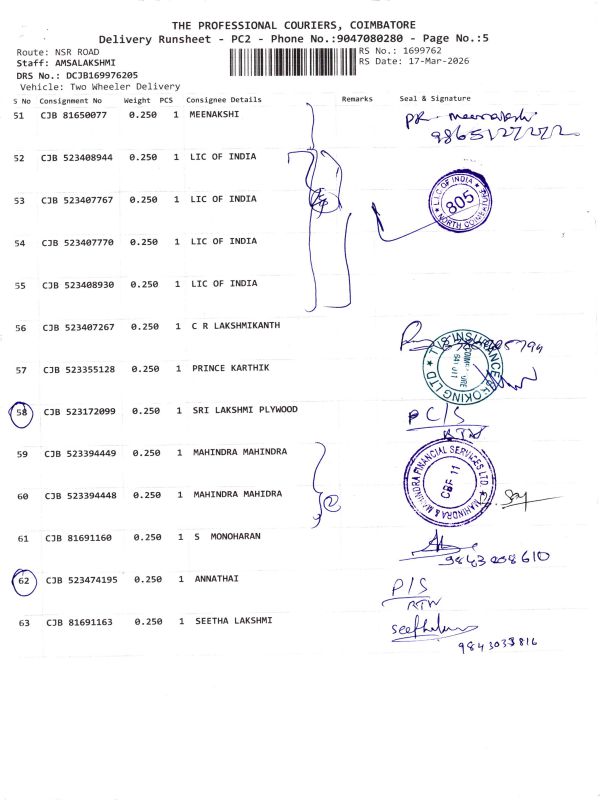 THE PROFESSIONAL COURIERS, COIMBATORE
Delivery Runsheet - PC2 - Phone No.:9047080280 - Page No.:5
Route: NSR ROAD
RS No.: 1699762
Staff: AMSALAKSHMI
RS Date: 17-Mar-2026
DRS No.: DCJB169976205
Vehicle: Two Wheeler Delivery
S No Consignment No Weight PCS Consignee Details Remarks Seal & Signature
51 CJB 81650077 0.250 1 MEENAKSHI
52 CJB 523408944 0.250 1 LIC OF INDIA
53 CJB 523407767 0.250 1 LIC OF INDIA
L.I.C OF INDIA
805
54 CJB 523407770 0.250 1 LIC OF INDIA
55 CJB 523408930 0.250 1 LIC OF INDIA
56 CJB 523407267 0.250 1 C R LAKSHMIKANTH
57 CJB 523355128 0.250 1 PRINCE KARTHIK
58 CJB 523172099 0.250 1 SRI LAKSHMI PLYWOOD
PC/S
RTN
59 CJB 523394449 0.250 1 MAHINDRA MAHINDRA
MAHINDRA & MAHINDRA FINANCIAL SERVICES LTD.
CBF 11
60 CJB 523394448 0.250 1 MAHINDRA MAHIDRA
2
61 CJB 81691160 0.250 1 S MONOHARAN
9843208610
62 CJB 523474195 0.250 1 ANNATHAI
P/S
RTN
63 CJB 81691163 0.250 1 SEETHA LAKSHMI
9843033816